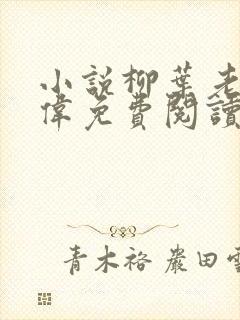 小說柳葉老
偉免費閱讀
青木裕 嚴田雪